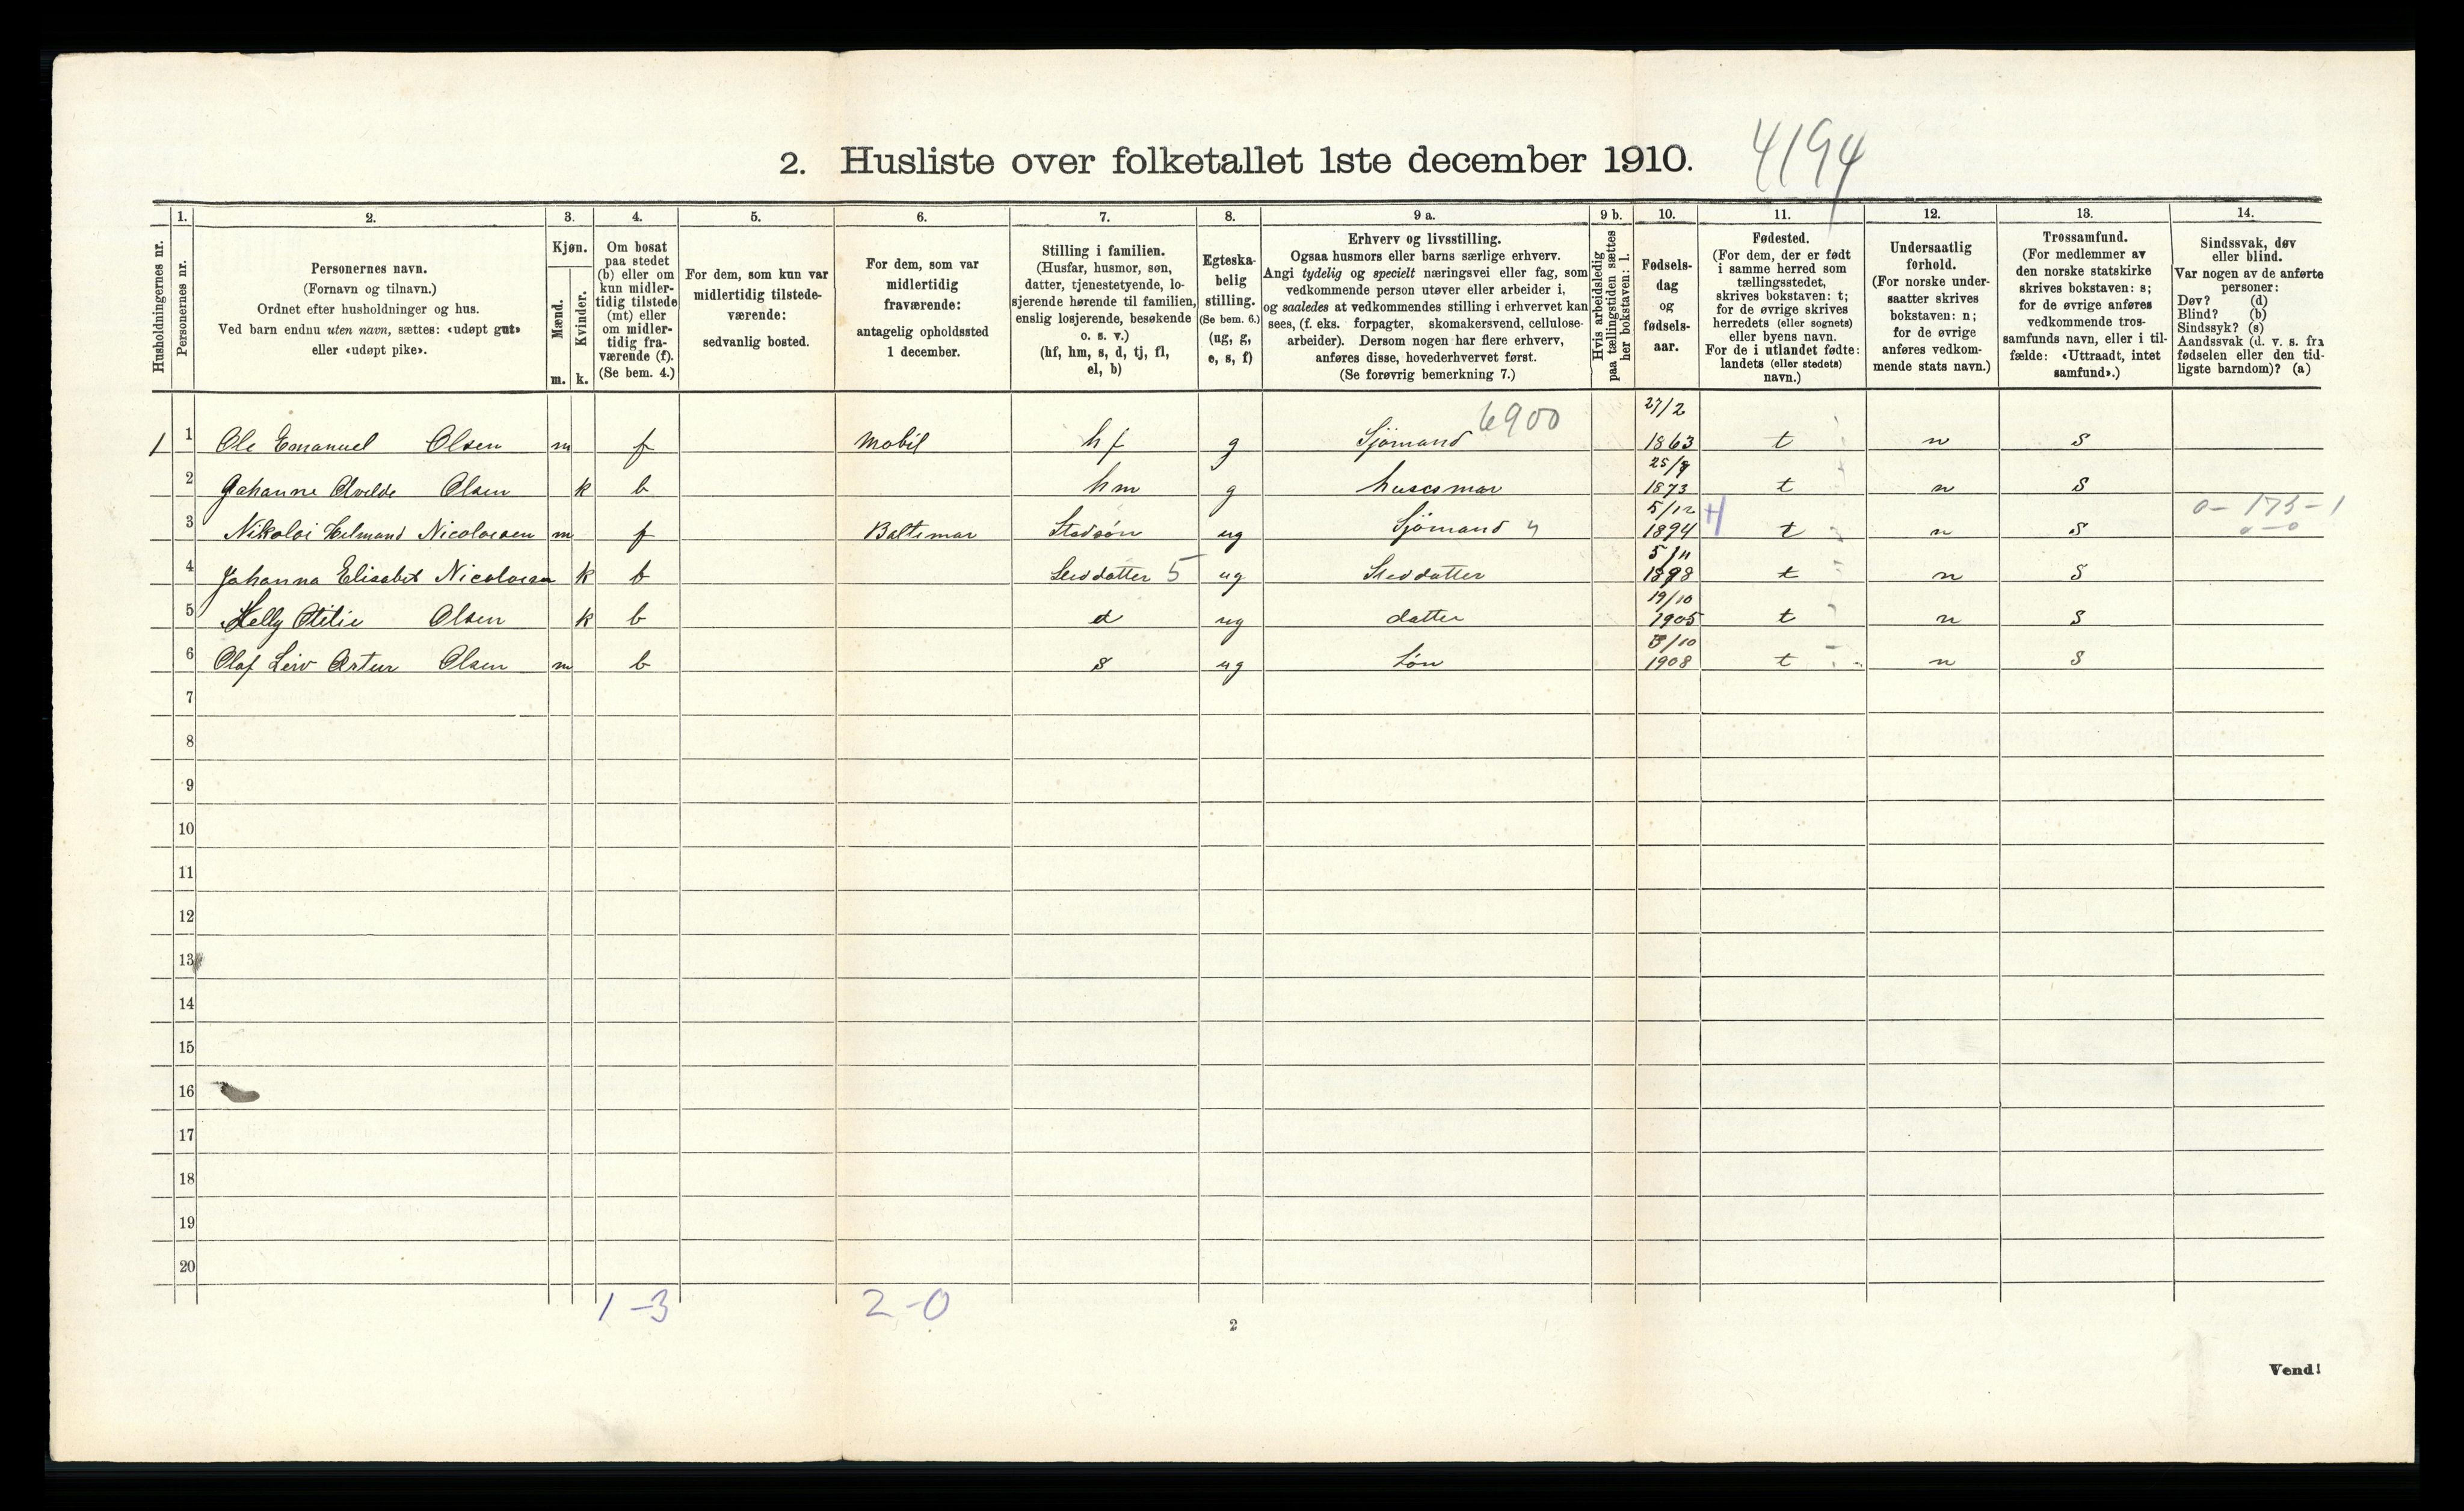 2. Husliste over folketallet 1ste december 1910.
4194
Husholdningernes nr.
1.
Personernes nr.
2.
Personernes navn.
(Fornavn og tilnavn.)
Ordnet efter husholdninger og hus.
Ved barn endnu uten navn, sættes: «udøpt gut»
eller «udøpt pike».
3.
Kjøn.
Mænd.
Kvinder.
m. k.
4.
Om bosat
paa stedet
(b) eller om
kun midler-
tidig tilstede
(mt) eller
om midler-
tidig fra-
værende (f).
(Se bem. 4.)
5.
For dem, som kun var
midlertidig tilstede-
værende:
sedvanlig bosted.
6.
For dem, som var
midlertidig
fraværende:
antagelig opholdssted
1 december.
7.
Stilling i familien.
(Husfar, husmor, søn,
datter, tjenestetyende, lo-
sjerende hørende til familien,
enslig losjerende, besøkende
o. s. v.)
(hf, hm, s, d, tj, fl,
el, b)
8.
Egteska-
belig
stilling.
(Se bem. 6.)
(ug, g,
e, s, f)
9 a.
Erhverv og livsstilling.
Ogsaa husmors eller barns særlige erhverv.
Angi tydelig og specielt næringsvei eller fag, som
vedkommende person utøver eller arbeider i,
og saaledes at vedkommendes stilling i erhvervet kan
sees, (f. eks. forpagter, skomakersvend, cellulose-
arbeider). Dersom nogen har flere erhverv,
anføres disse, hovederhvervet først.
(Se forøvrig bemerkning 7.)
9 b.
Hvis arbeidsledig
paa tællingstiden sættes
her bokstaven: l.
10.
Fødsels-
dag
og
fødsels-
aar.
11.
Fødested.
(For dem, der er født
i samme herred som
tællingsstedet,
skrives bokstaven: t;
for de øvrige skrives
herredets (eller sognets)
eller byens navn.
For de i utlandet fødte:
landets (eller stedets)
navn.)
12.
Undersaatlig
forhold.
(For norske under-
saatter skrives
bokstaven: n;
for de øvrige
anføres vedkom-
mende stats navn.)
13.
Trossamfund.
(For medlemmer av
den norske statskirke
skrives bokstaven: s;
for de øvrige anføres
vedkommende tros-
samfunds navn, eller i til-
fælde: «Uttraadt, intet
samfund».)
14.
Sindssvak, døv
eller blind.
Var nogen av de anførte
personer:
Døv? (d)
Blind? (b)
Sindssyk? (s)
Aandssvak (d. v. s. fra
fødselen eller den tid-
ligste barndom)? (a)
1 1 Ole Emanuel Olsen m f Mobil hf g Sjömand 6900 27/2 1863 t n S
2 Johanne Olsen k b hm g husesmor 1873 t n S
3 Nikolai Helmand Nicolaisen m f Baltimar Stedsön ug Sjömand 4 5/12 1894 H t n S 0-173-1
0-0
4 Johanna Elisabet Nicolaisen k b Steddatter 5 ug Steddatter 5/11 1898 t n S
5 Otilie Olsen k b d ug datter 19/10 1905 t n S
6 Olaf Leiv Artur Olsen m b s ug Sön 1908 t n S
7
8
9
10
11
12
13
14
15
16
17
18
19
20
1-3 2-0
2
Vend!